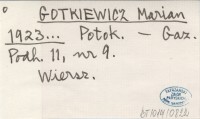 GOTKIEWICZ Marian
1923... Potok. – Gaz.
Podh. 11, nr 9.
Wiersz.